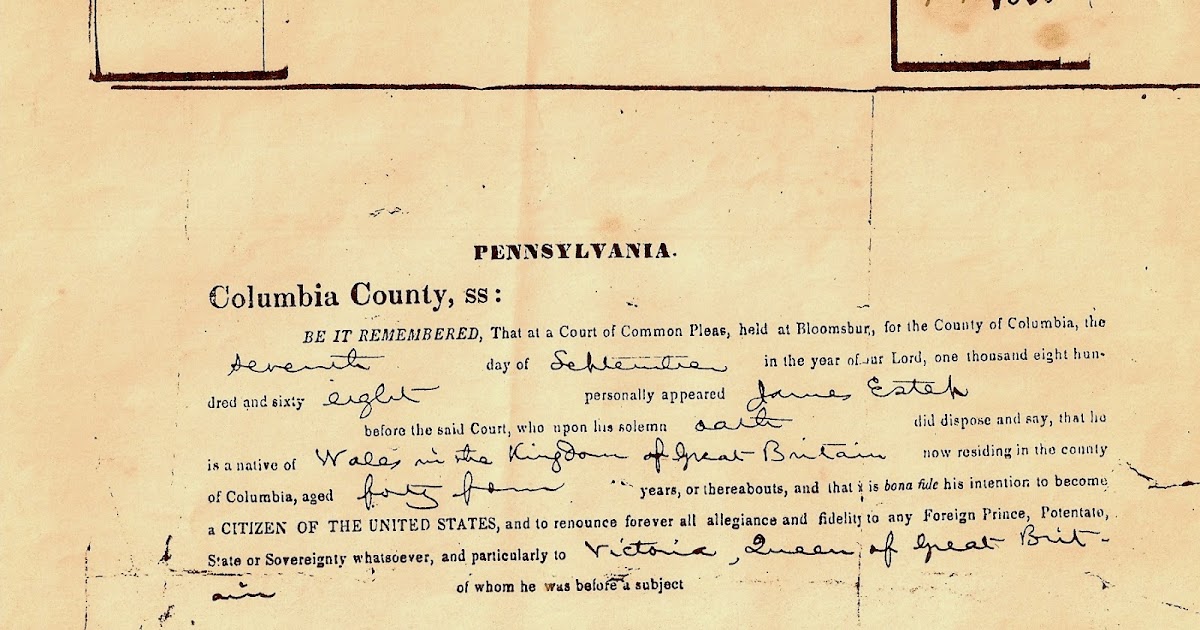 PENNSYLVANIA.
Columbia County, ss:
BE IT REMEMBERED, That at a Court of Common Pleas, held at Bloomsbur, for the County of Columbia, the
seventh day of September in the year of our Lord, one thousand eight hun-
dred and sixty eight personally appeared James Estep
before the said Court, who upon his solemn oath did dispose and say, that he
is a native of Wales in the Kingdom of Great Britain now residing in the county
of Columbia, aged forty four years, or thereabouts, and that i is bona fide his intention to become
a CITIZEN OF THE UNITED STATES, and to renounce forever all allegiance and fidelity to any Foreign Prince, Potentate,
State or Sovereignty whatsoever, and particularly to Victoria, Queen of Great Brit-
ain of whom he was before a subject